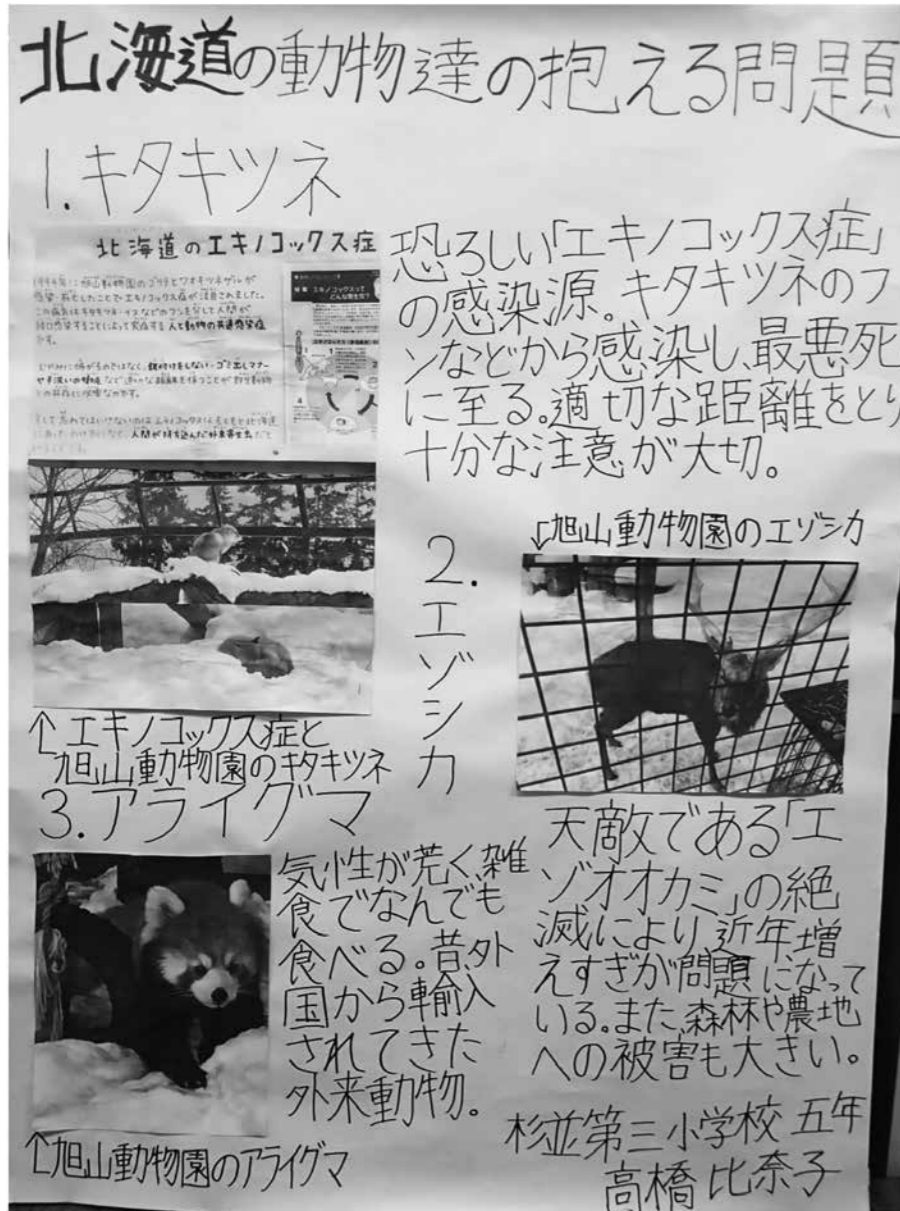 北海道の動物達の抱える問題
1.キタキツネ
北海道のエキノコックス症
恐ろしい「エキノコックス症」
の感染源。キタキツネのフ
ンなどから感染し、最悪死
に至る。適切な距離をとり
十分な注意が大切。
↑エキノコックス症と
旭山動物園のキタキツネ
2.エゾシカ
↓旭山動物園のエゾシカ
天敵である「エ
ゾオオカミ」の絶
滅により、近年、増
えすぎが問題になって
いる。また、森林や農地
への被害も大きい。
3.アライグマ
気性が荒く、雑
食でなんでも
食べる。昔、外
国から輸入
されてきた
外来動物。
↑旭山動物園のアライグマ
杉並第三小学校 五年
高橋 比奈子